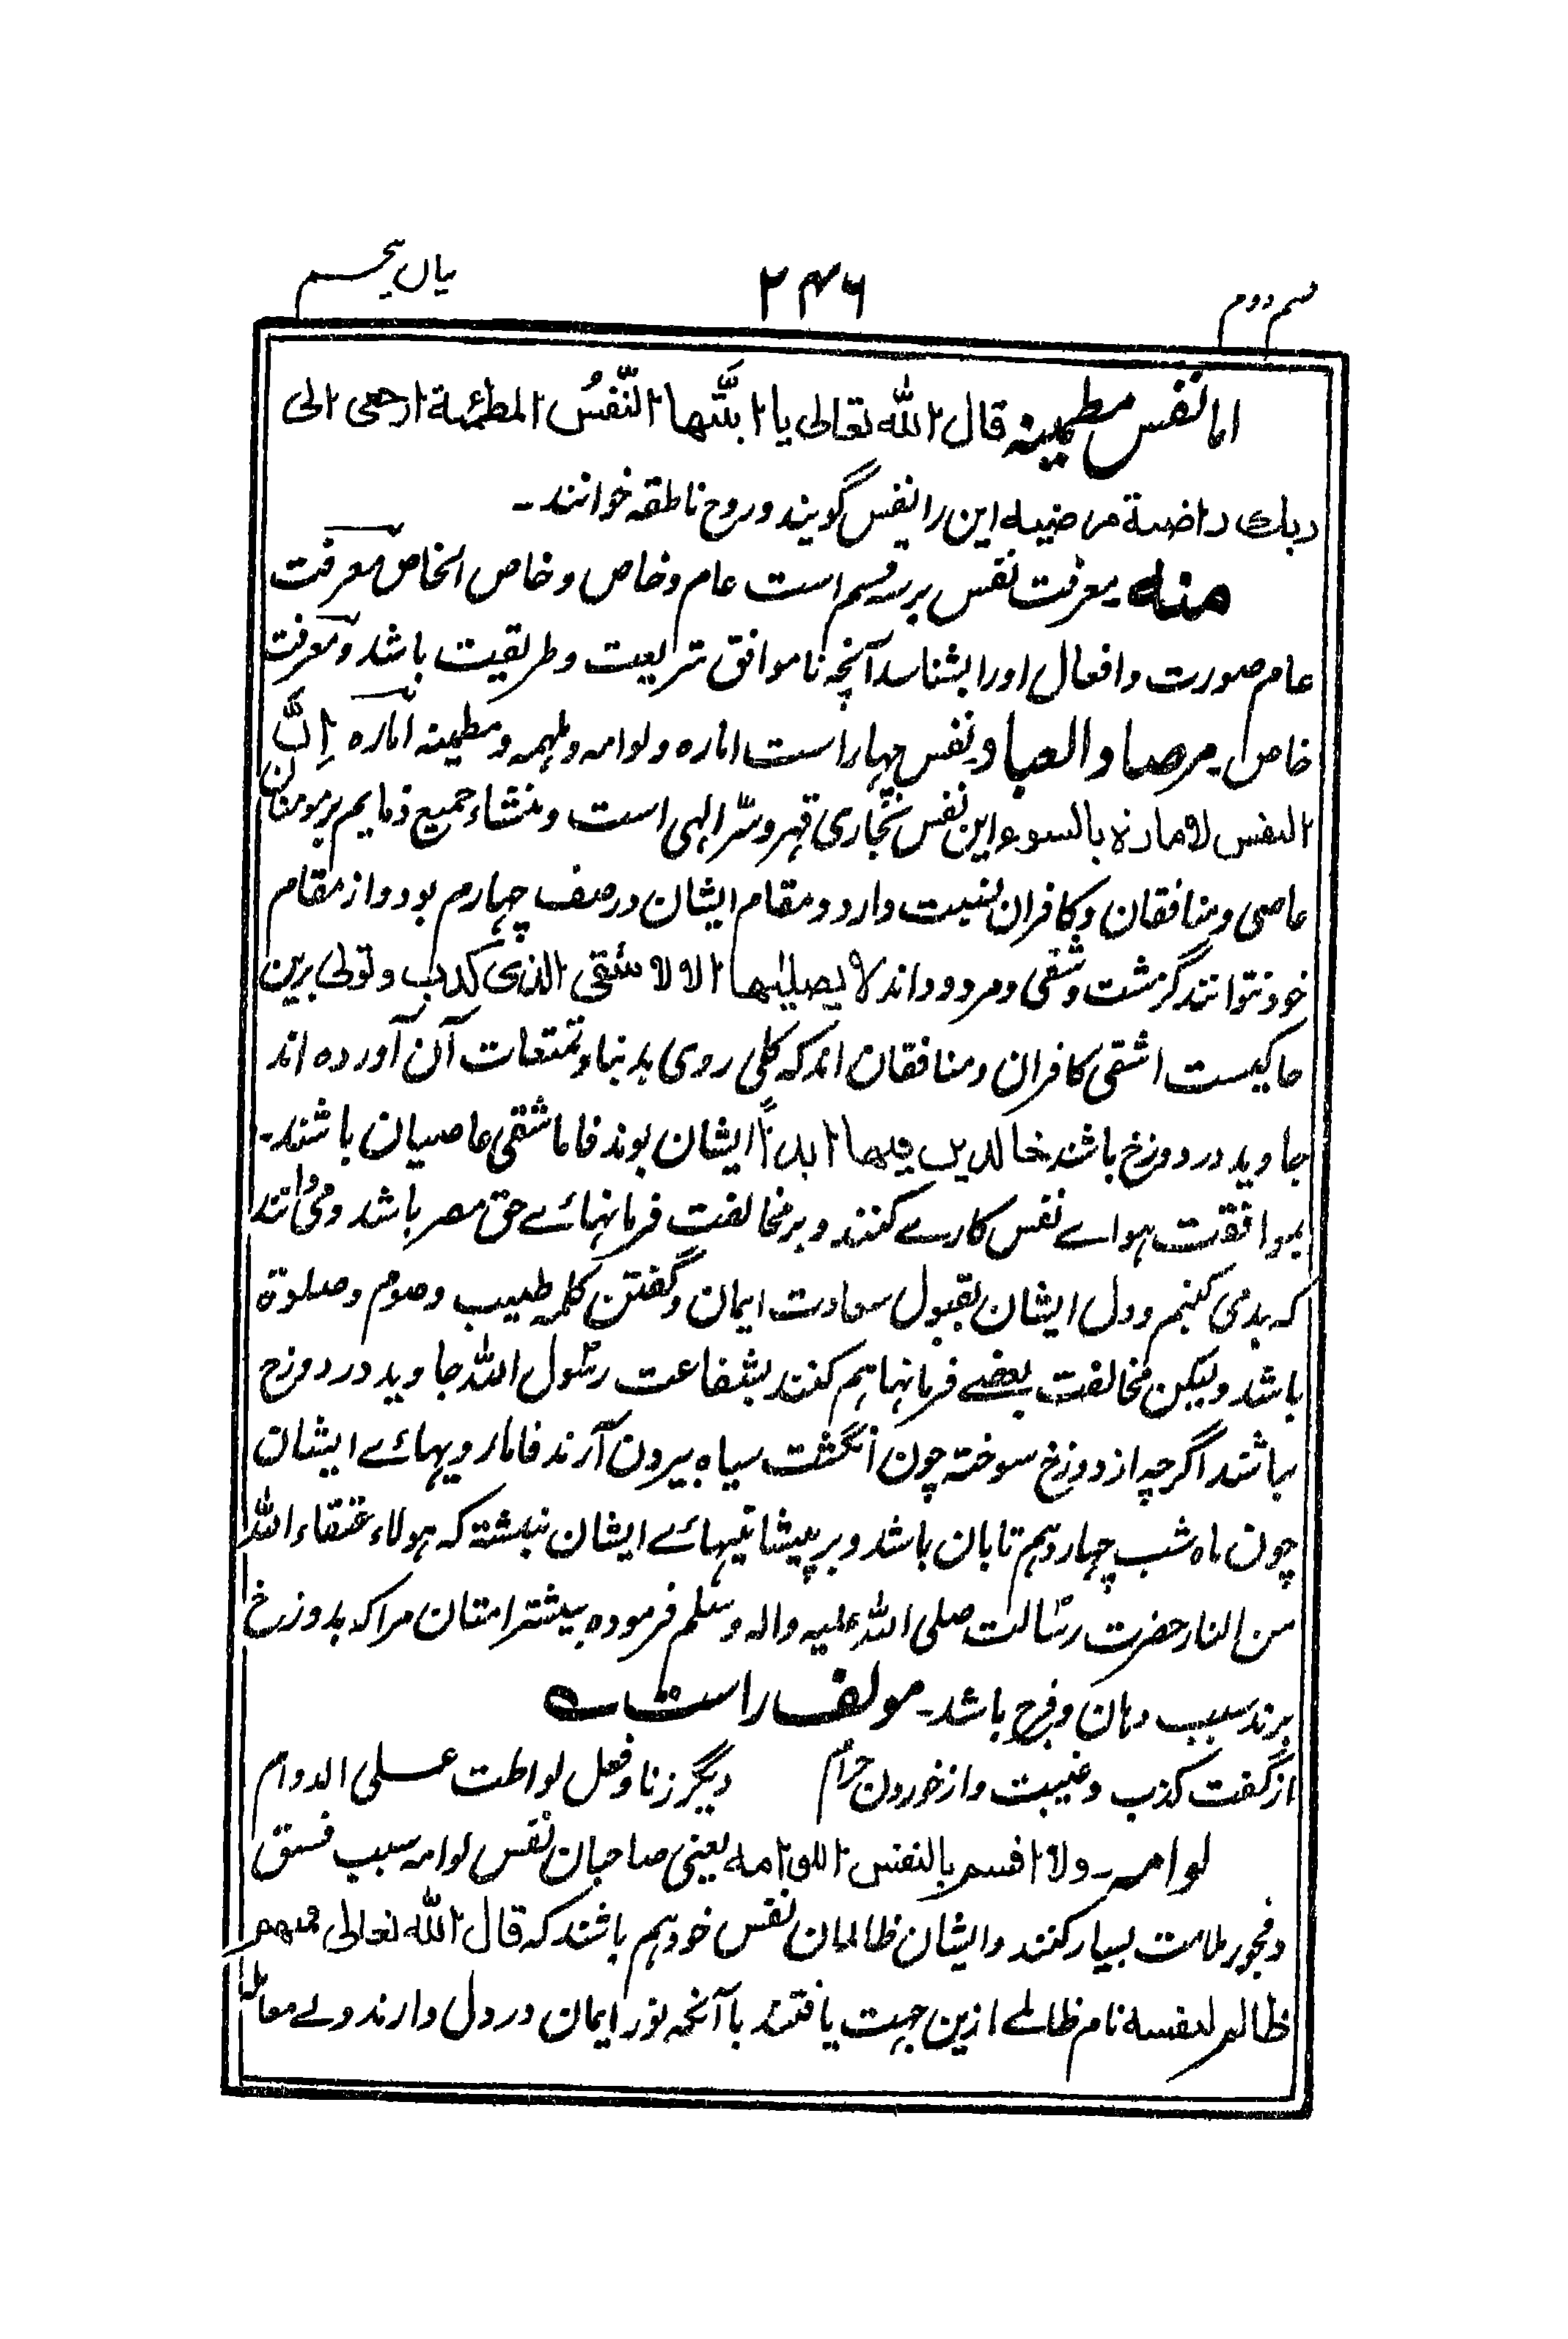 قسم دوم ۲۴۶ بیاں پنجم
اما نفس مطمینه قال الله تعالی یا ایتها النفسُ المطمئنة ارجعی الی
ربک راضیة مرضیه این را نفس گویند و روح ناطقه خوانند۔
منه معرفت نفس بر سه قسم است عام و خاص و خاص الخاص معرفت
عام صورت و افعال او را بشناسد آنچه ناموافق شریعت و طریقیت باشد و معرفت
خاص۔ مرصاد العباد نفس چهار است اماره و لوامه و ملهمه و مطمینه اماره اِنَّ
النفس لامارة بالسوء این نفس مجاری قهر و سّر الهی است و منشاء جمیع ذمایم بر مومنان
عاصی و منافقان و کافران نسبت دارد و مقام ایشان در صف چهارم بود و از مقام
خود نتوانند گزشت و شقی و مردود اند لا یصلیٰها الا لا شقی الذی کذب و تولی برین
حاکیست اشقی کافران و منافقان اند که کلی روی بدنیا و تمتعات آن آورده اند
جاوید در دوزخ باشند خالدین فیها ابداً ایشان بوند فاما شقی عاصیان باشند۔
بموافقت هواے نفس کارے کنند و بر مخالفت فرمانهائے حق مصر باشد و می دانند
که بد می کنیم و دل ایشان بقبول سعادت ایمان و گفتن کلمه طیب و صوم و صلوة
باشد ولیکن مخالفت بعضے فرمانها هم کنند بشفاعت رسول الله جاوید در دوزخ
نباشند اگرچه از دوزخ سوخته چون انگشت سیاه بیرون آرند فاما رویهائے ایشان
چون ماه شب چهاردهم تابان باشد و بر پیشانیهائے ایشان نبشته که هولاء عتقاء الله
من النار حضرت رسالت صلی الله علیه واله وسلم فرموده بیشتر امتان مرا که بدوزخ
برند سبب دهان و فرج باشد۔ مولف راست ؎
از گفت کذب و غیبت و از خوردن حرام دیگر زنا و فعل لواطت عسلی الدوام
لوامه۔ ولا اقسم بالنفس اللوامه یعنی صاحبان نفس لوامه سبب فسق
و فجور ملامت بسیار کنند و ایشان ظالمان نفس خود هم باشند که قال الله تعالی فمنهم
ظالم لنفسه نام ظالمے ازین جهت یافتند با آنکه نور ایمان در دل دارند ولے معامله